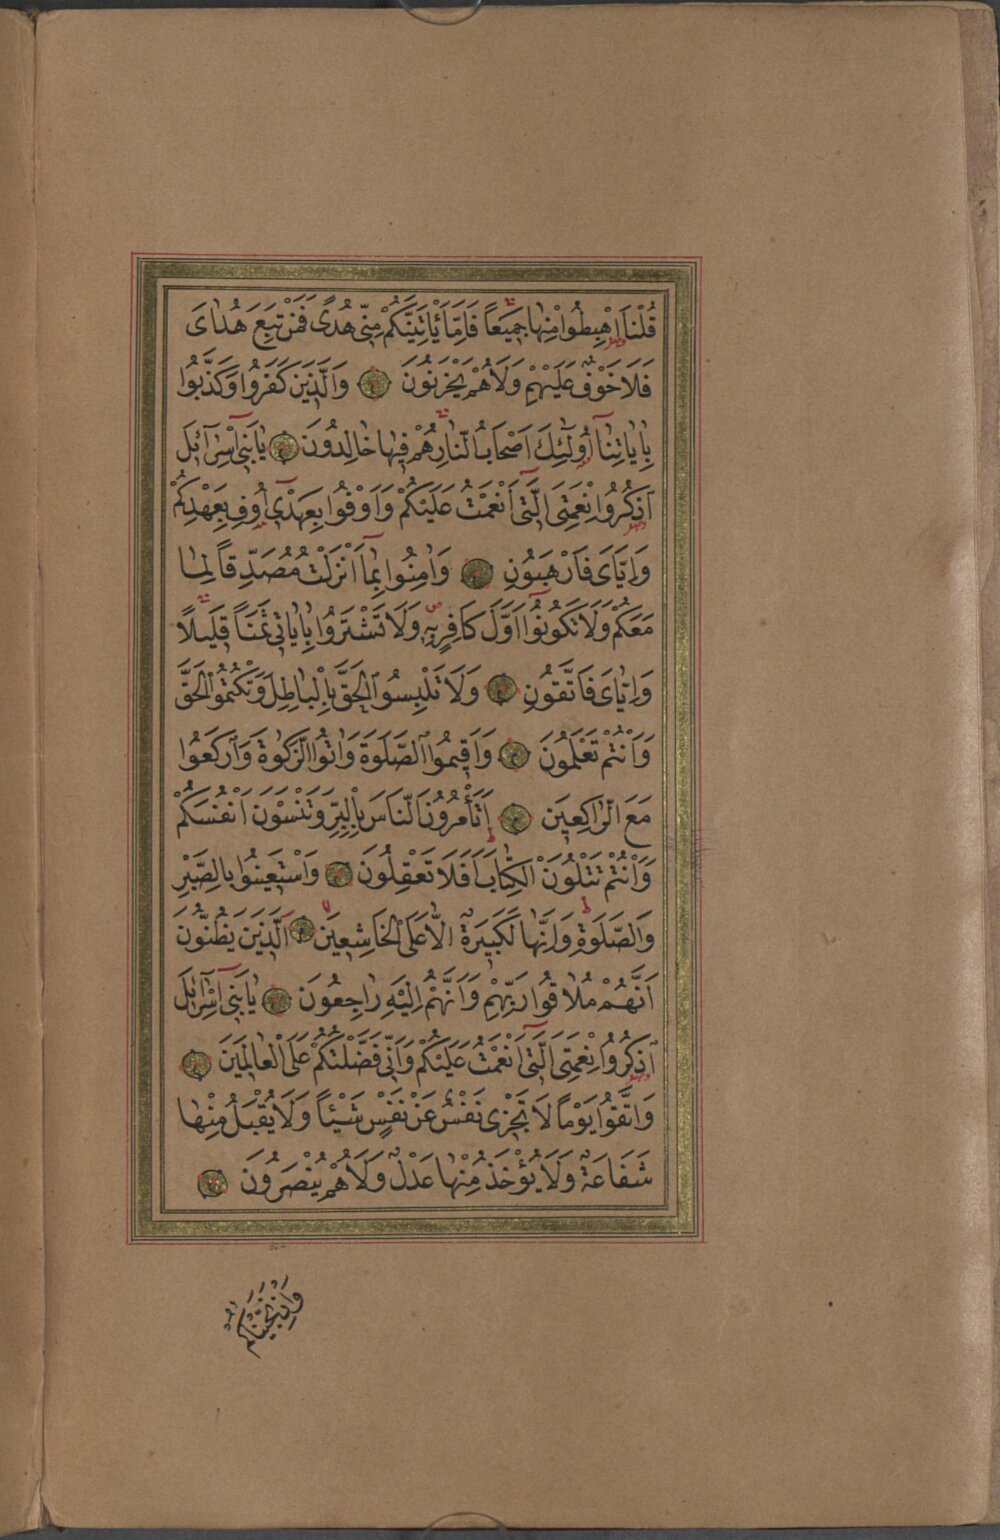 قُلْنَا اهْبِطُوا مِنْهَا جَمِيعًا فَاِمَّا يَأْتِيَنَّكُمْ مِنِّي هُدًى فَمَنْ تَبِعَ هُدَايَ
فَلَا خَوْفٌ عَلَيْهِمْ وَلَا هُمْ يَحْزَنُونَ وَالَّذِينَ كَفَرُوا وَكَذَّبُوا
بِاٰيَاتِنَا اُولٰئِكَ اَصْحَابُ النَّارِ هُمْ فِيهَا خَالِدُونَ يَابَنِي اِسْرَائِلَ
اذْكُرُوا نِعْمَتِيَ الَّتِي اَنْعَمْتُ عَلَيْكُمْ وَاَوْفُوا بِعَهْدِي اُوفِ بِعَهْدِكُمْ
وَاِيَّايَ فَارْهَبُونِ وَاٰمِنُوا بِمَا اَنْزَلْتُ مُصَدِّقًا لِمَا
مَعَكُمْ وَلَا تَكُونُوا اَوَّلَ كَافِرٍ بِهِ وَلَا تَشْتَرُوا بِاٰيَاتِي ثَمَنًا قَلِيلًا
وَاِيَّايَ فَاتَّقُونِ وَلَا تَلْبِسُوا الْحَقَّ بِالْبَاطِلِ وَتَكْتُمُوا الْحَقَّ
وَاَنْتُمْ تَعْلَمُونَ وَاَقِيمُوا الصَّلٰوةَ وَاٰتُوا الزَّكٰوةَ وَارْكَعُوا
مَعَ الرَّاكِعِينَ اَتَأْمُرُونَ النَّاسَ بِالْبِرِّ وَتَنْسَوْنَ اَنْفُسَكُمْ
وَاَنْتُمْ تَتْلُونَ الْكِتَابَ اَفَلَا تَعْقِلُونَ وَاسْتَعِينُوا بِالصَّبْرِ
وَالصَّلٰوةِ وَاِنَّهَا لَكَبِيرَةٌ اِلَّا عَلَى الْخَاشِعِينَ اَلَّذِينَ يَظُنُّونَ
اَنَّهُمْ مُلَاقُوا رَبِّهِمْ وَاَنَّهُمْ اِلَيْهِ رَاجِعُونَ يَابَنِي اِسْرَائِلَ
اذْكُرُوا نِعْمَتِيَ الَّتِي اَنْعَمْتُ عَلَيْكُمْ وَاَنِّي فَضَّلْتُكُمْ عَلَى الْعَالَمِينَ
وَاتَّقُوا يَوْمًا لَا تَجْزِي نَفْسٌ عَنْ نَفْسٍ شَيْئًا وَلَا يُقْبَلُ مِنْهَا
شَفَاعَةٌ وَلَا يُؤْخَذُ مِنْهَا عَدْلٌ وَلَا هُمْ يُنْصَرُونَ